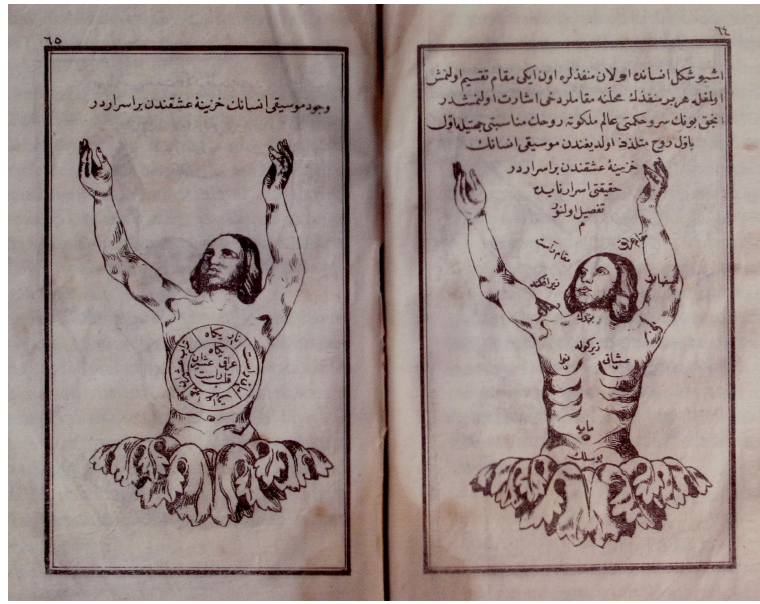 ٦٤
اشبو شكل انسانده اولان منفذلره اون ايكى مقام تقسيم اولنمش
اولمغله هر بر منفذك محلنه مقاملر دخى اشارت اولنمشدر
انجق بونك سر و حكمتى عالم ملكوته روحك مناسبتى جهتيله اول
باول روح متلذذ اولديغندن موسيقى انسانك
خزينۀ عشقندن بر اسراردر
حقيقتى اسرار نايده
تفصيل اولنور
م
مقام راست
عراق
زيرافكنه
بزرك
زيركوله
نوا
عشاق
مايه
بوسلك
٦٥
وجود موسيقى انسانك خزينۀ عشقندن بر اسراردر
يكاه
راست
عراق عشيران
راست